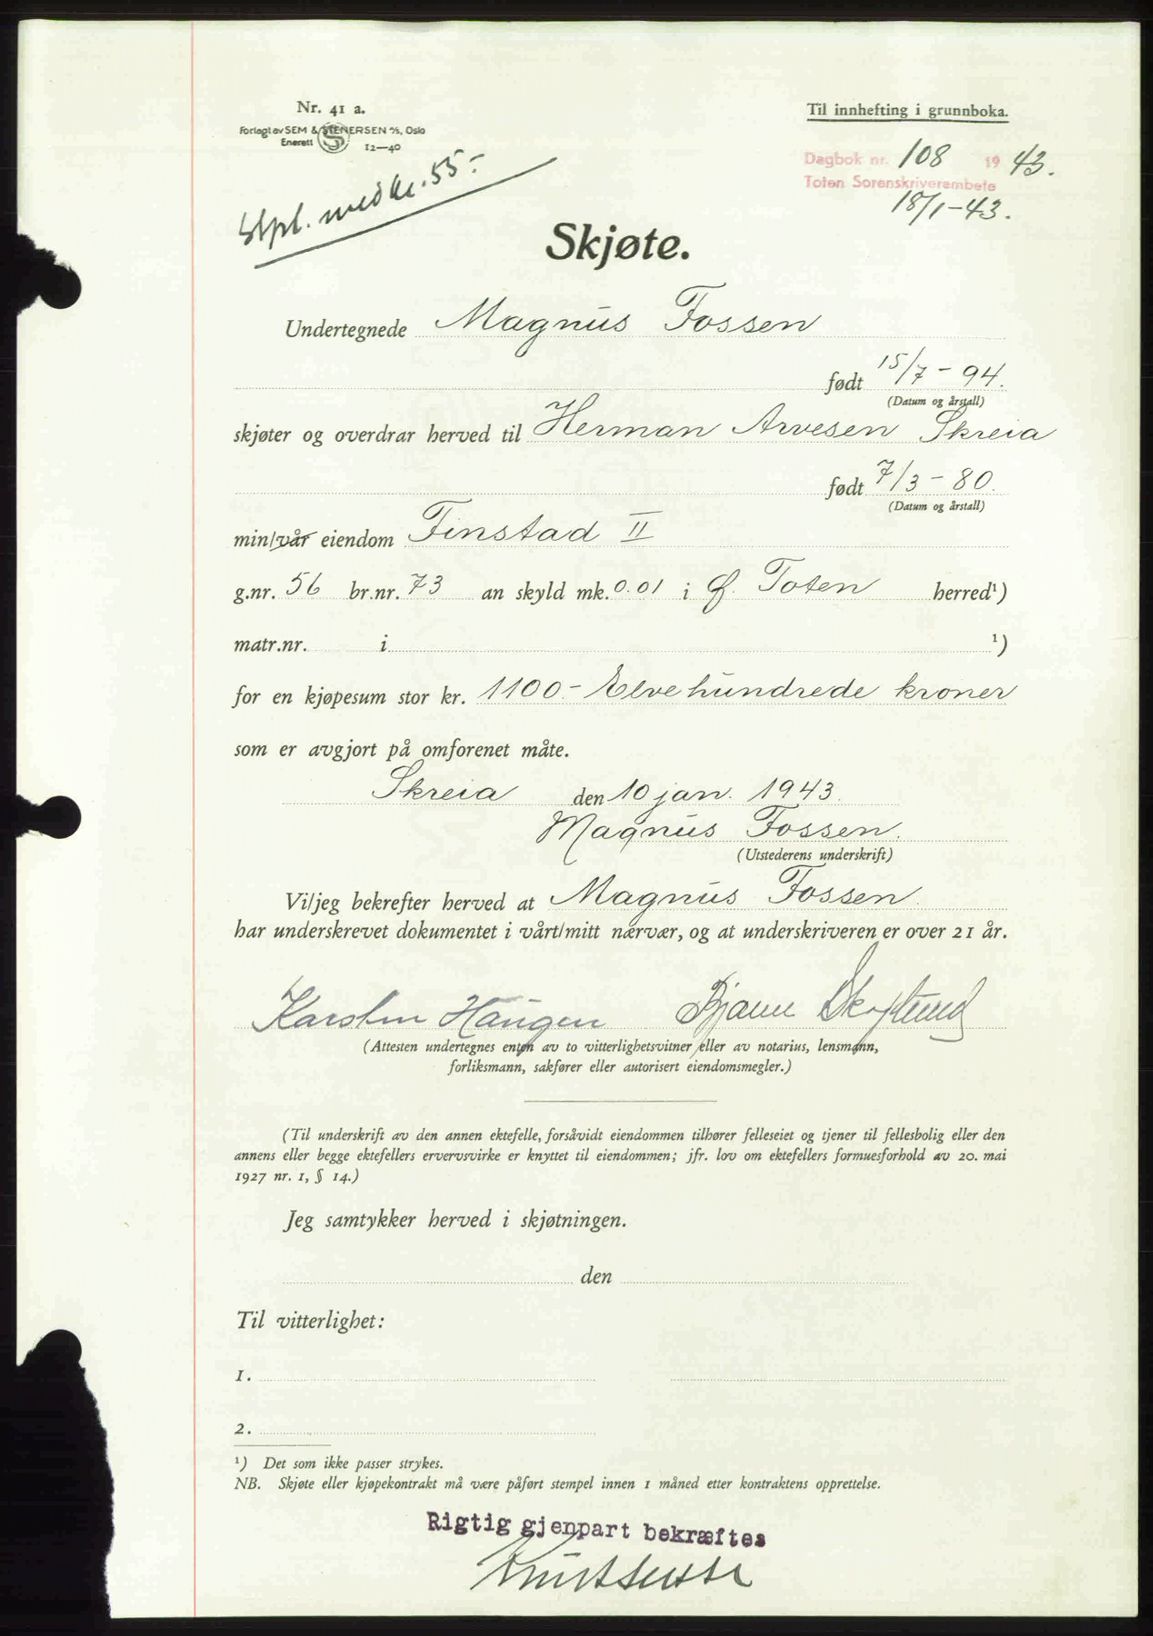 Nr. 41 a.
Forlagt av SEM & STENERSEN A/S, Oslo
Enerett S 12—40
Til innhefting i grunnboka.
Dagbok nr. 108 1943.
Toten Sorenskriverembete
18/1-43.
Stpl. med kr. 55.-
Skjøte.
Undertegnede Magnus Fossen
født 15/7-94.
(Datum og årstall)
skjøter og overdrar herved til Herman Arvesen Skreia
født 7/3-80.
(Datum og årstall)
min/vår eiendom Finstad II
g.nr. 56 br.nr. 73 an skyld mk. 0.01 i Ø. Toten herred¹)
matr.nr. i ¹)
for en kjøpesum stor kr. 1100.- Elvehundrede kroner
som er avgjort på omforenet måte.
Skreia den 10 jan. 1943.
Magnus Fossen.
(Utstederens underskrift)
Vi/jeg bekrefter herved at Magnus Fossen.
har underskrevet dokumentet i vårt/mitt nærvær, og at underskriveren er over 21 år.
Karsten Haugen Bjarne Skoglund
(Attesten undertegnes enten av to vitterlighetsvitner eller av notarius, lensmann,
forliksmann, sakfører eller autorisert eiendomsmegler.)
(Til underskrift av den annen ektefelle, forsåvidt eiendommen tilhører felleseiet og tjener til fellesbolig eller den
annens eller begge ektefellers ervervsvirke er knyttet til eiendommen; jfr. lov om ektefellers formuesforhold av 20. mai
1927 nr. 1, § 14.)
Jeg samtykker herved i skjøtningen.
den
Til vitterlighet:
1.
2.
¹) Det som ikke passer strykes.
NB. Skjøte eller kjøpekontrakt må være påført stempel innen 1 måned etter kontraktens opprettelse.
Rigtig gjenpart bekræftes